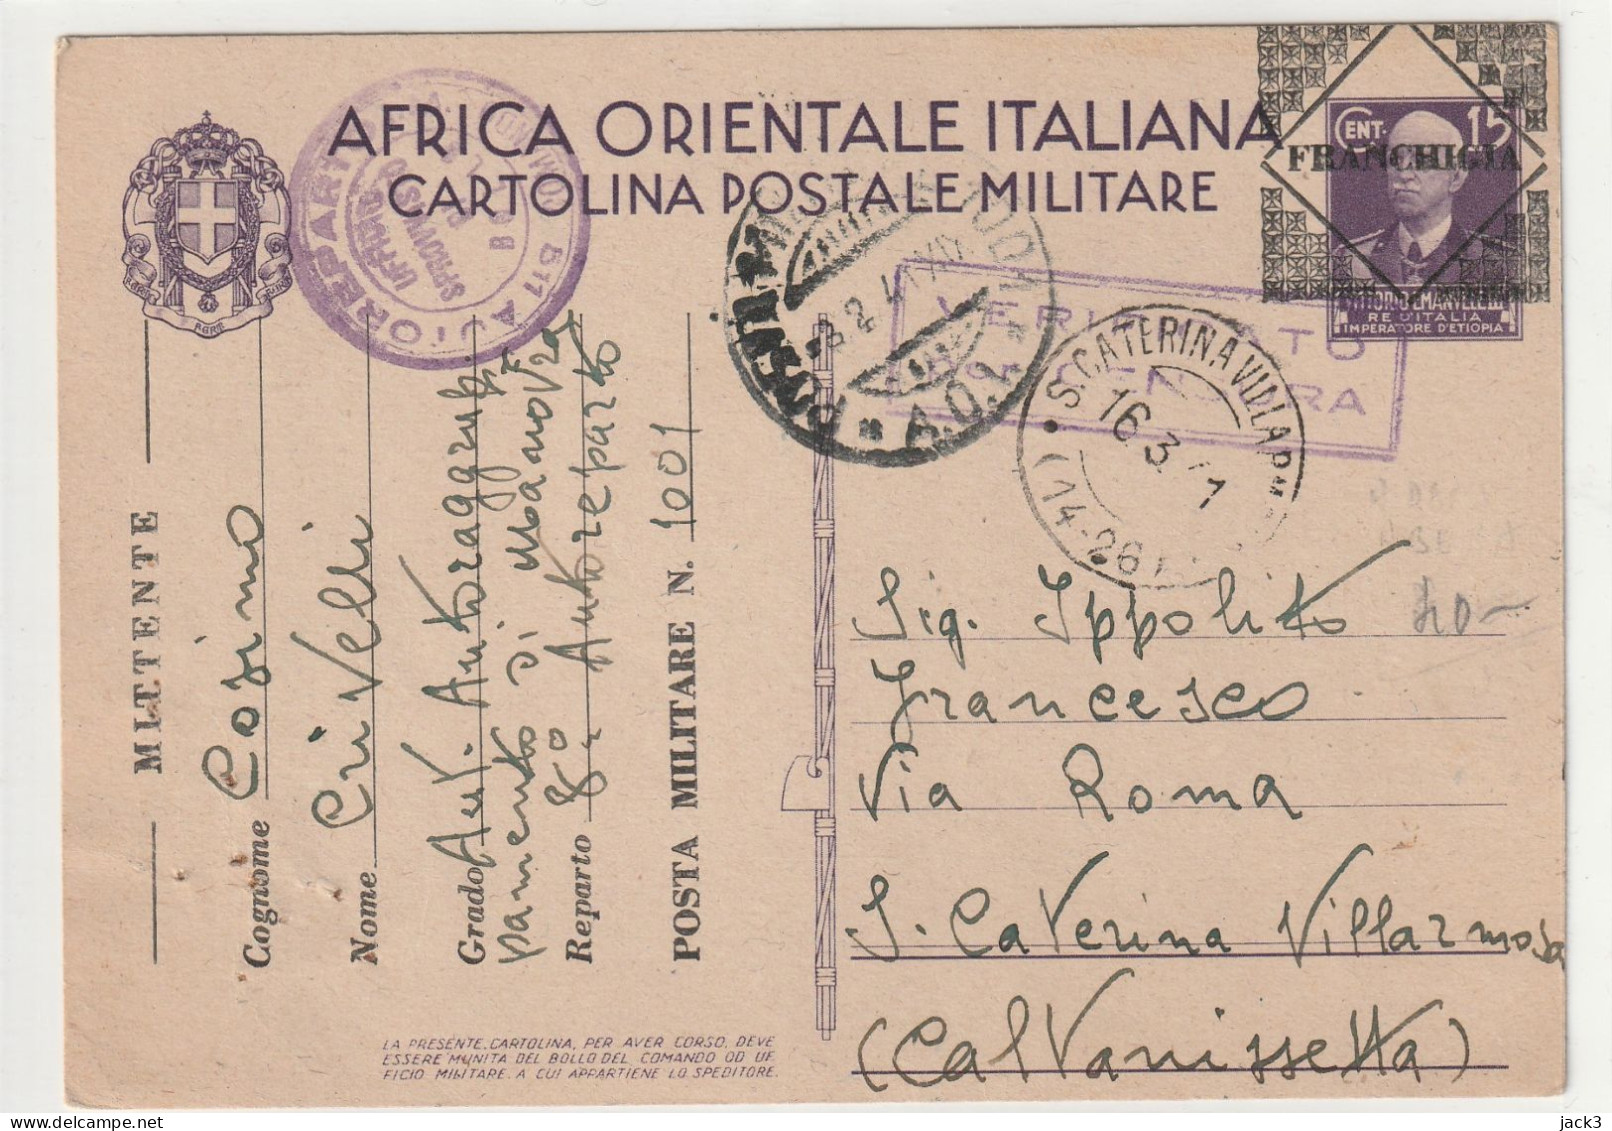 AFRICA ORIENTALE ITALIANA
CARTOLINA POSTALE MILITARE
CENT. 15
FRANCHIGIA
VITTORIO EMANUELE III
RE D'ITALIA
IMPERATORE D'ETIOPIA
511 AUTOREPARTO
UFFICIO
A.O.I.
VERIFICATO
CENSURA
S. CATERINA VILLARM
16 3 41
(14-26)
MITTENTE
Cognome Cosimo
Nome Crivelli
Grado Aut. Autoraggrup
pamento di manovra
Reparto 80 Autoreparto
POSTA MILITARE N. 1001
Sig. Ippolito
Francesco
Via Roma
S. Caterina Villarmosa
(Caltanissetta)
40-
LA PRESENTE CARTOLINA, PER AVER CORSO, DEVE
ESSERE MUNITA DEL BOLLO DEL COMANDO OD UF-
FICIO MILITARE A CUI APPARTIENE LO SPEDITORE.
jack3